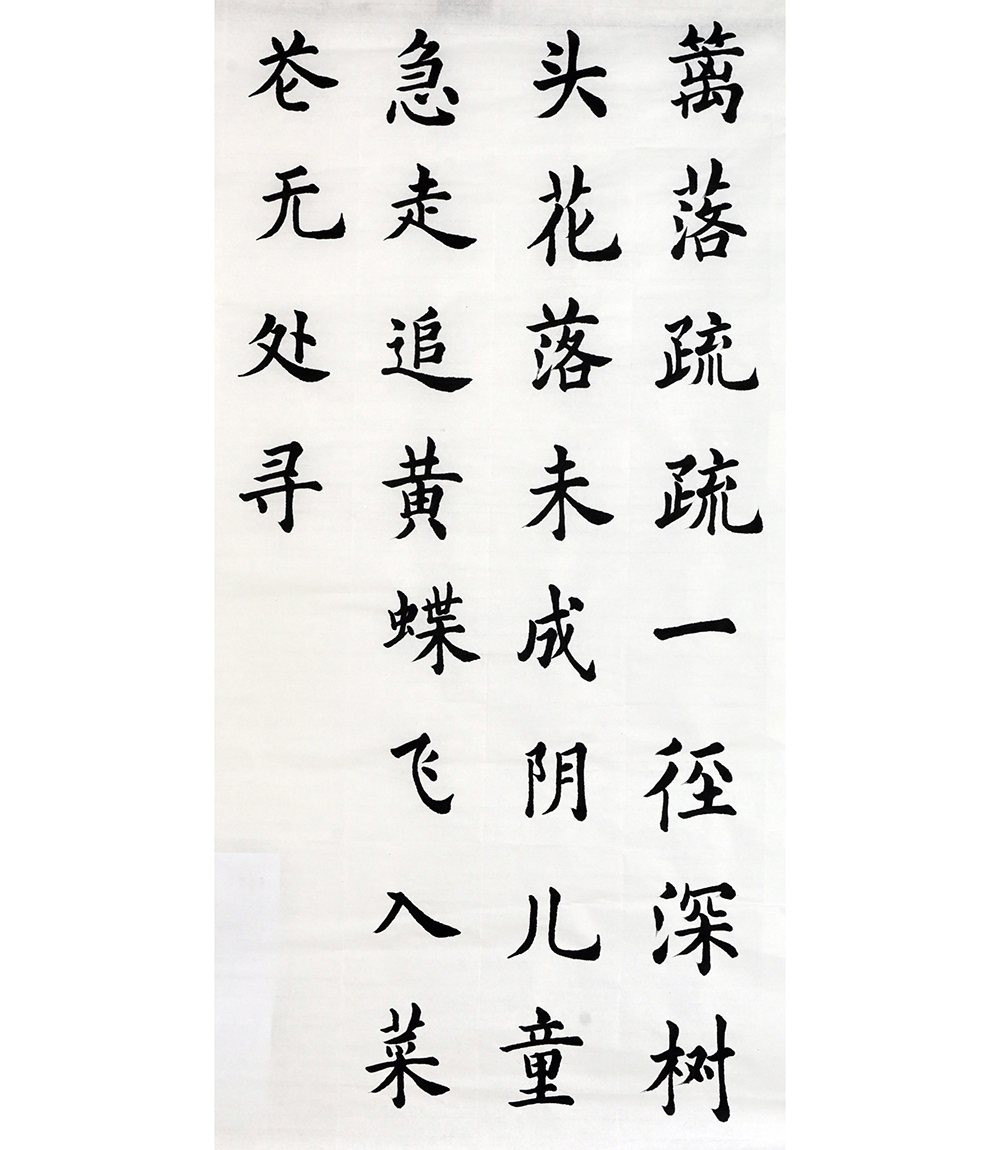 篱落疏疏一径深树
头花落未成阴儿童
急走追黄蝶飞入菜
芲无处寻